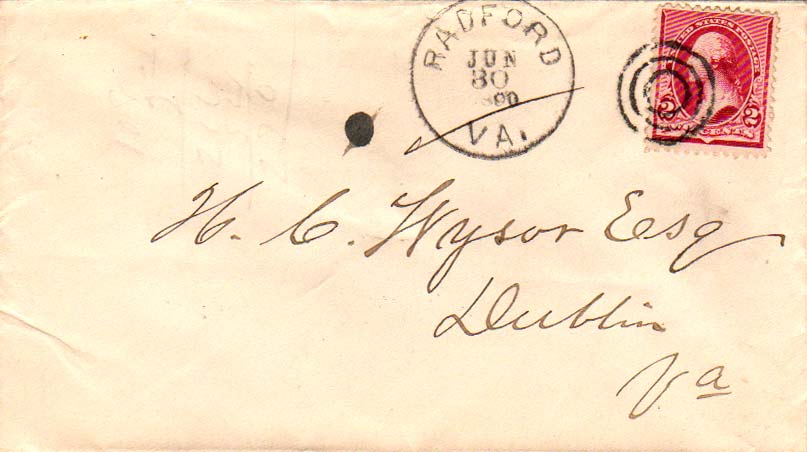 RADFORD
JUN
30
1890
VA.
UNITED STATES POSTAGE
2 2
TWO CENTS
H. C. Wysor Esq
Dublin
Va